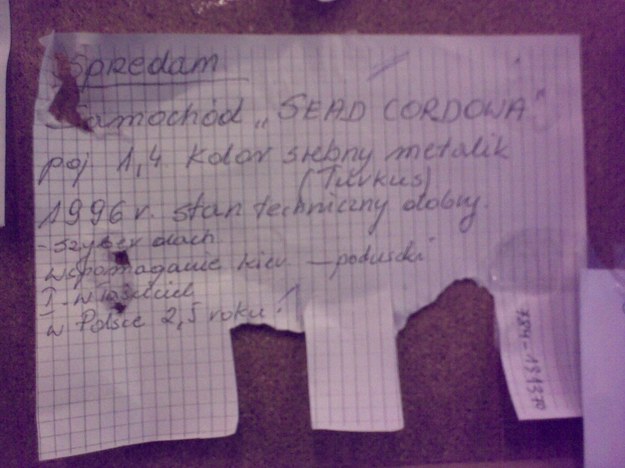 Spredam
Samochód „SEAD CORDOWA"
poj 1,4 kolor srebny metalik
(Turkus)
1996 r. stan techniczny dobry.
- szyber dach
wspomaganie kier. – poduscki
I - właściciel
w Polsce 2,5 roku!
784-131378